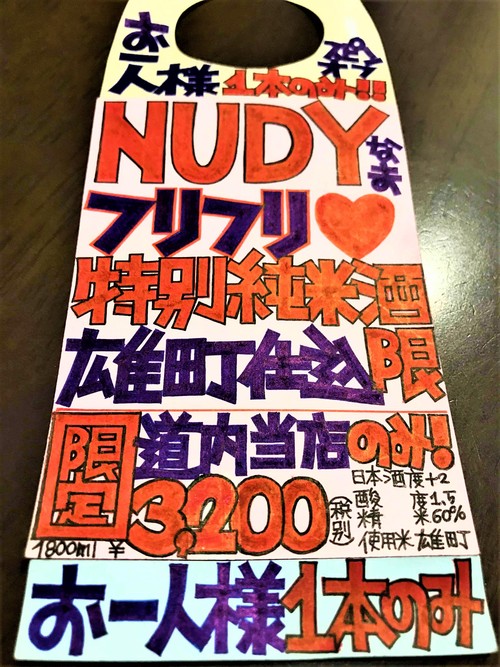 お一人様 1本のみ!!
NUDY
なま
フリフリ♥
特別純米酒
雄町仕込 限
限定
道内当店のみ!
1800ml ¥3,200 (税別)
日本酒度+2
酸度1.5
精米60%
使用米雄町
お一人様1本のみ